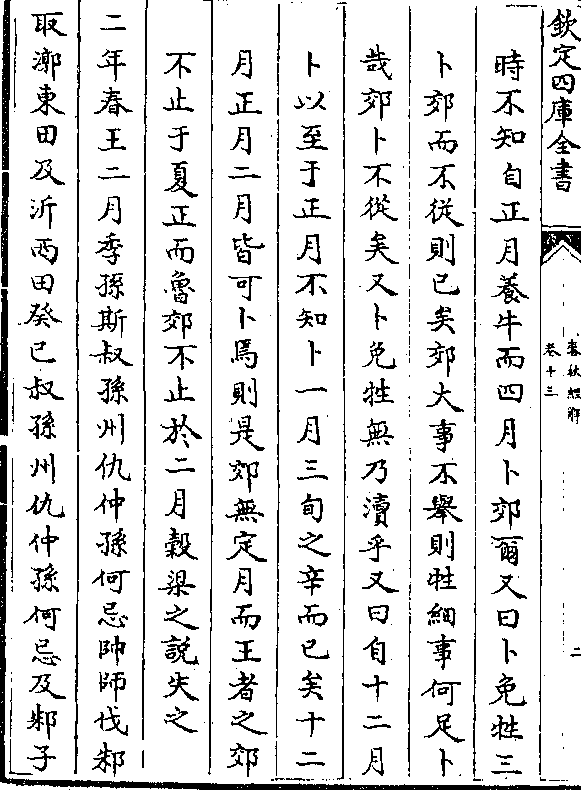 欽定四庫全書
春秋經解
卷十三
二
時不知自正月養牛而四月卜郊爾又曰卜免牲三
卜郊而不從則已矣郊大事不舉則牲細事何足卜
哉郊卜不從矣又卜免牲無乃瀆乎又曰自十二月
卜以至于正月不知卜一月三旬之辛而已矣十二
月正月二月皆可卜焉則是郊無定月而王者之郊
不止于夏正而魯郊不止於二月穀梁之說失之
二年春王二月季孫斯叔孫州仇仲孫何忌帥師伐邾
取漷東田及沂西田癸巳叔孫州仇仲孫何忌及邾子